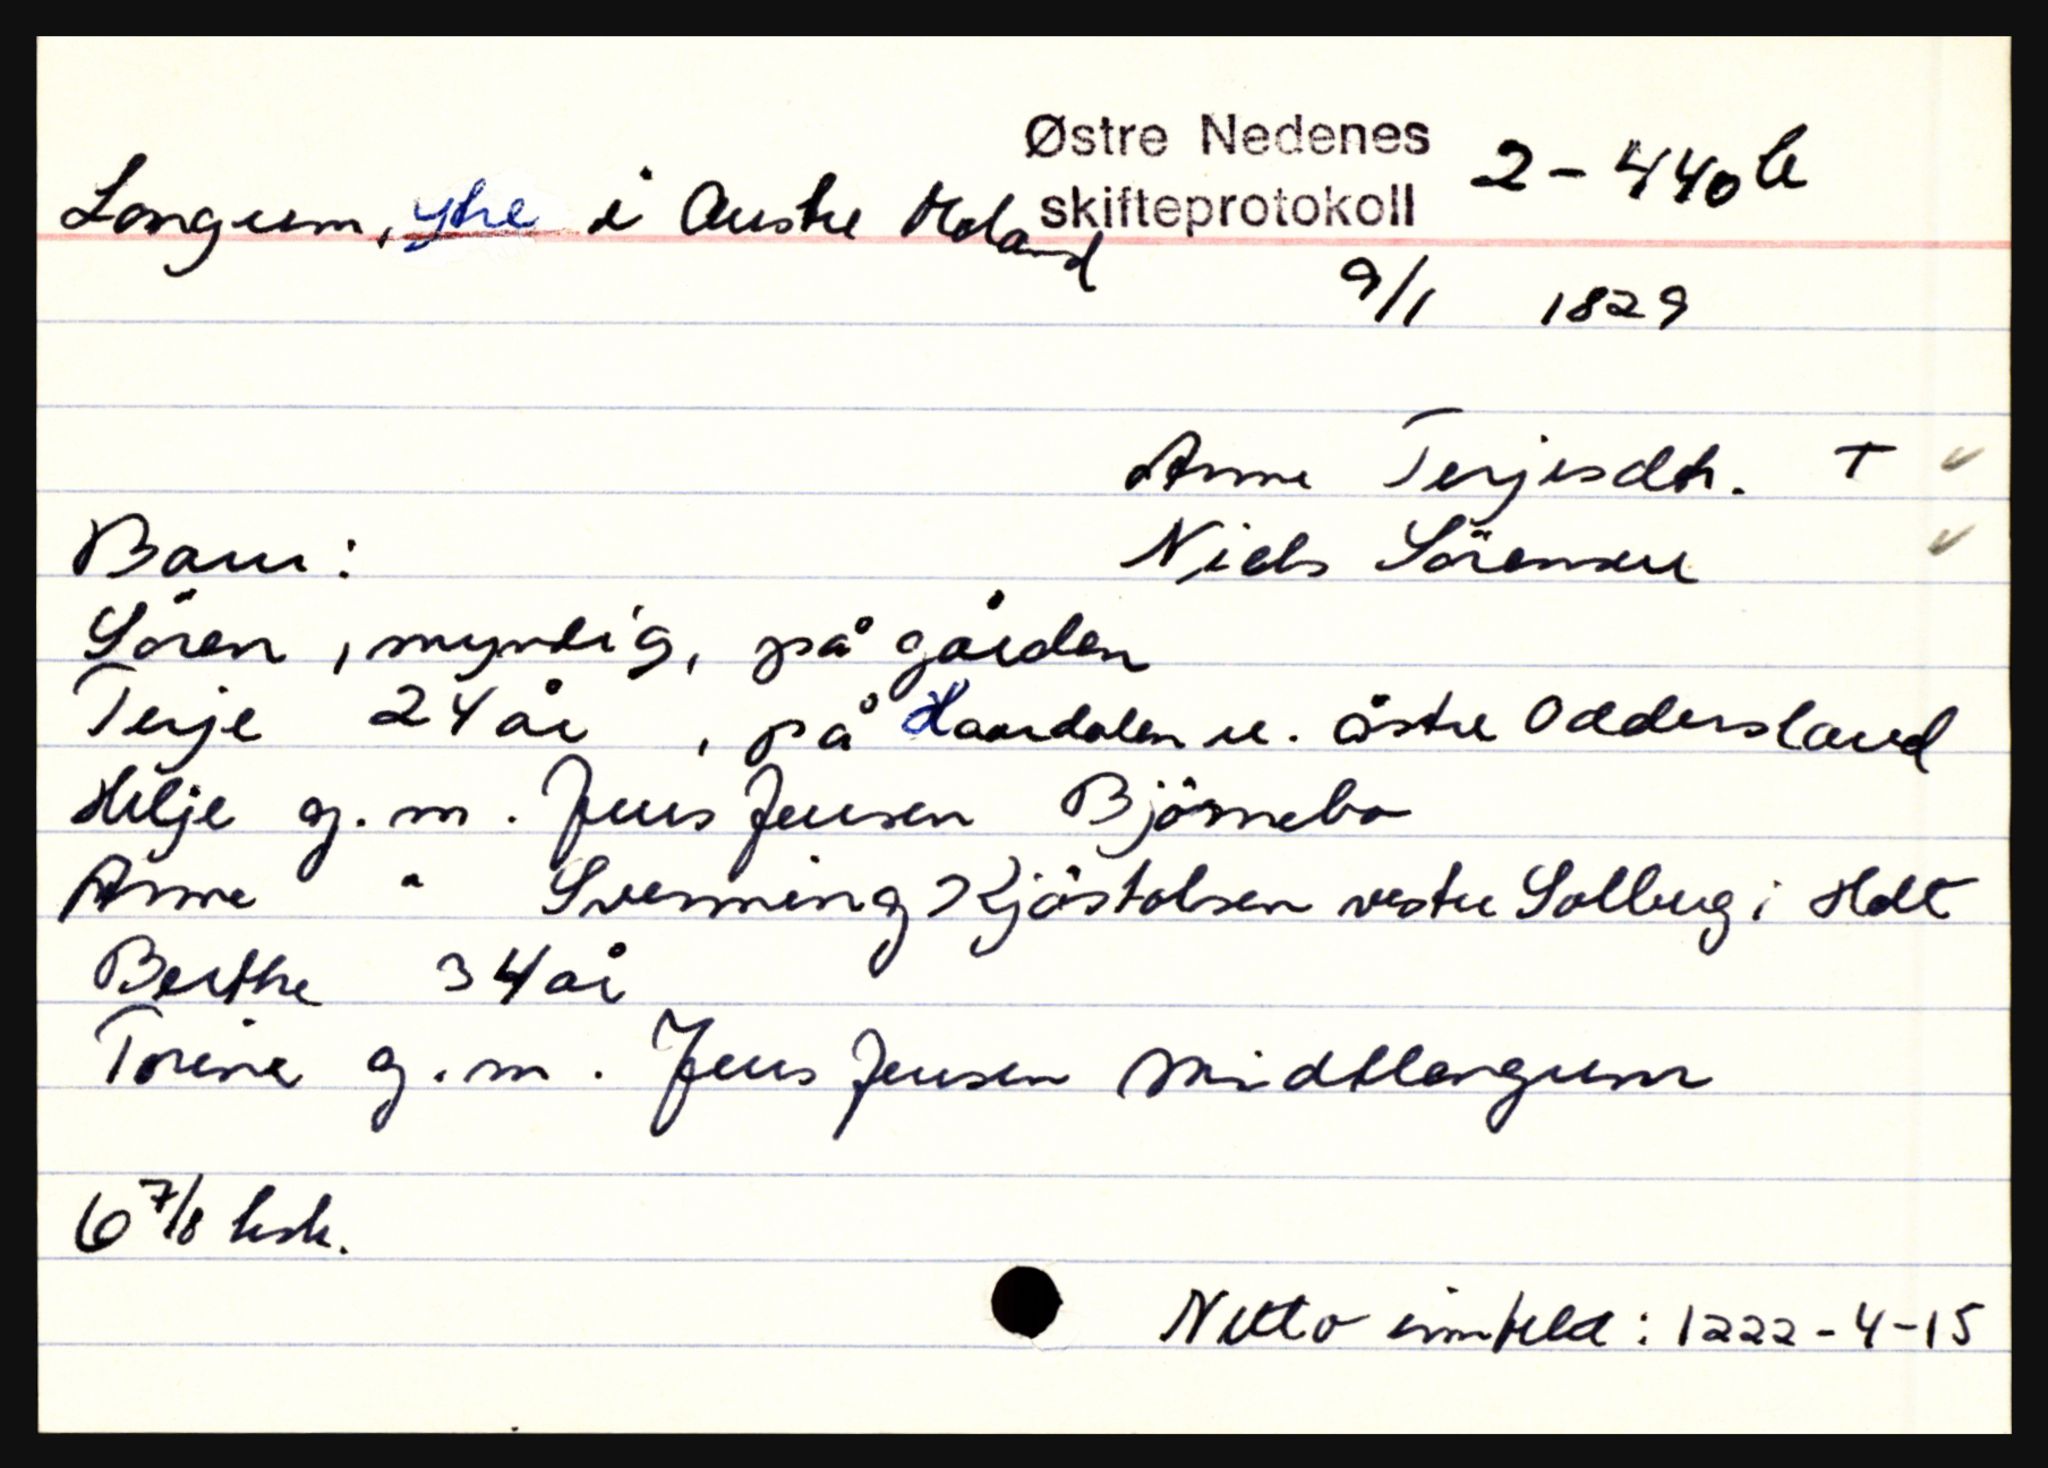 Østre Nedenes 2-440b
skifteprotokoll
Longum, ytre i Austre Moland
9/1 1829
Anne Terjesdtr. +
Barn: Niels Sörensen
Sören, myndig, på gården
Terje 24 år, på Haardalen u. östre Oddersland
Helje g.m. Jens Jensen Björnebo
Anne " Svenning Kjöstolsen vestre Solberg i Holt
Berthe 34 år
Torine g.m. Jens Jensen Midtlongum
6 7/8 ksk.
Netto innteld: 1222-4-15